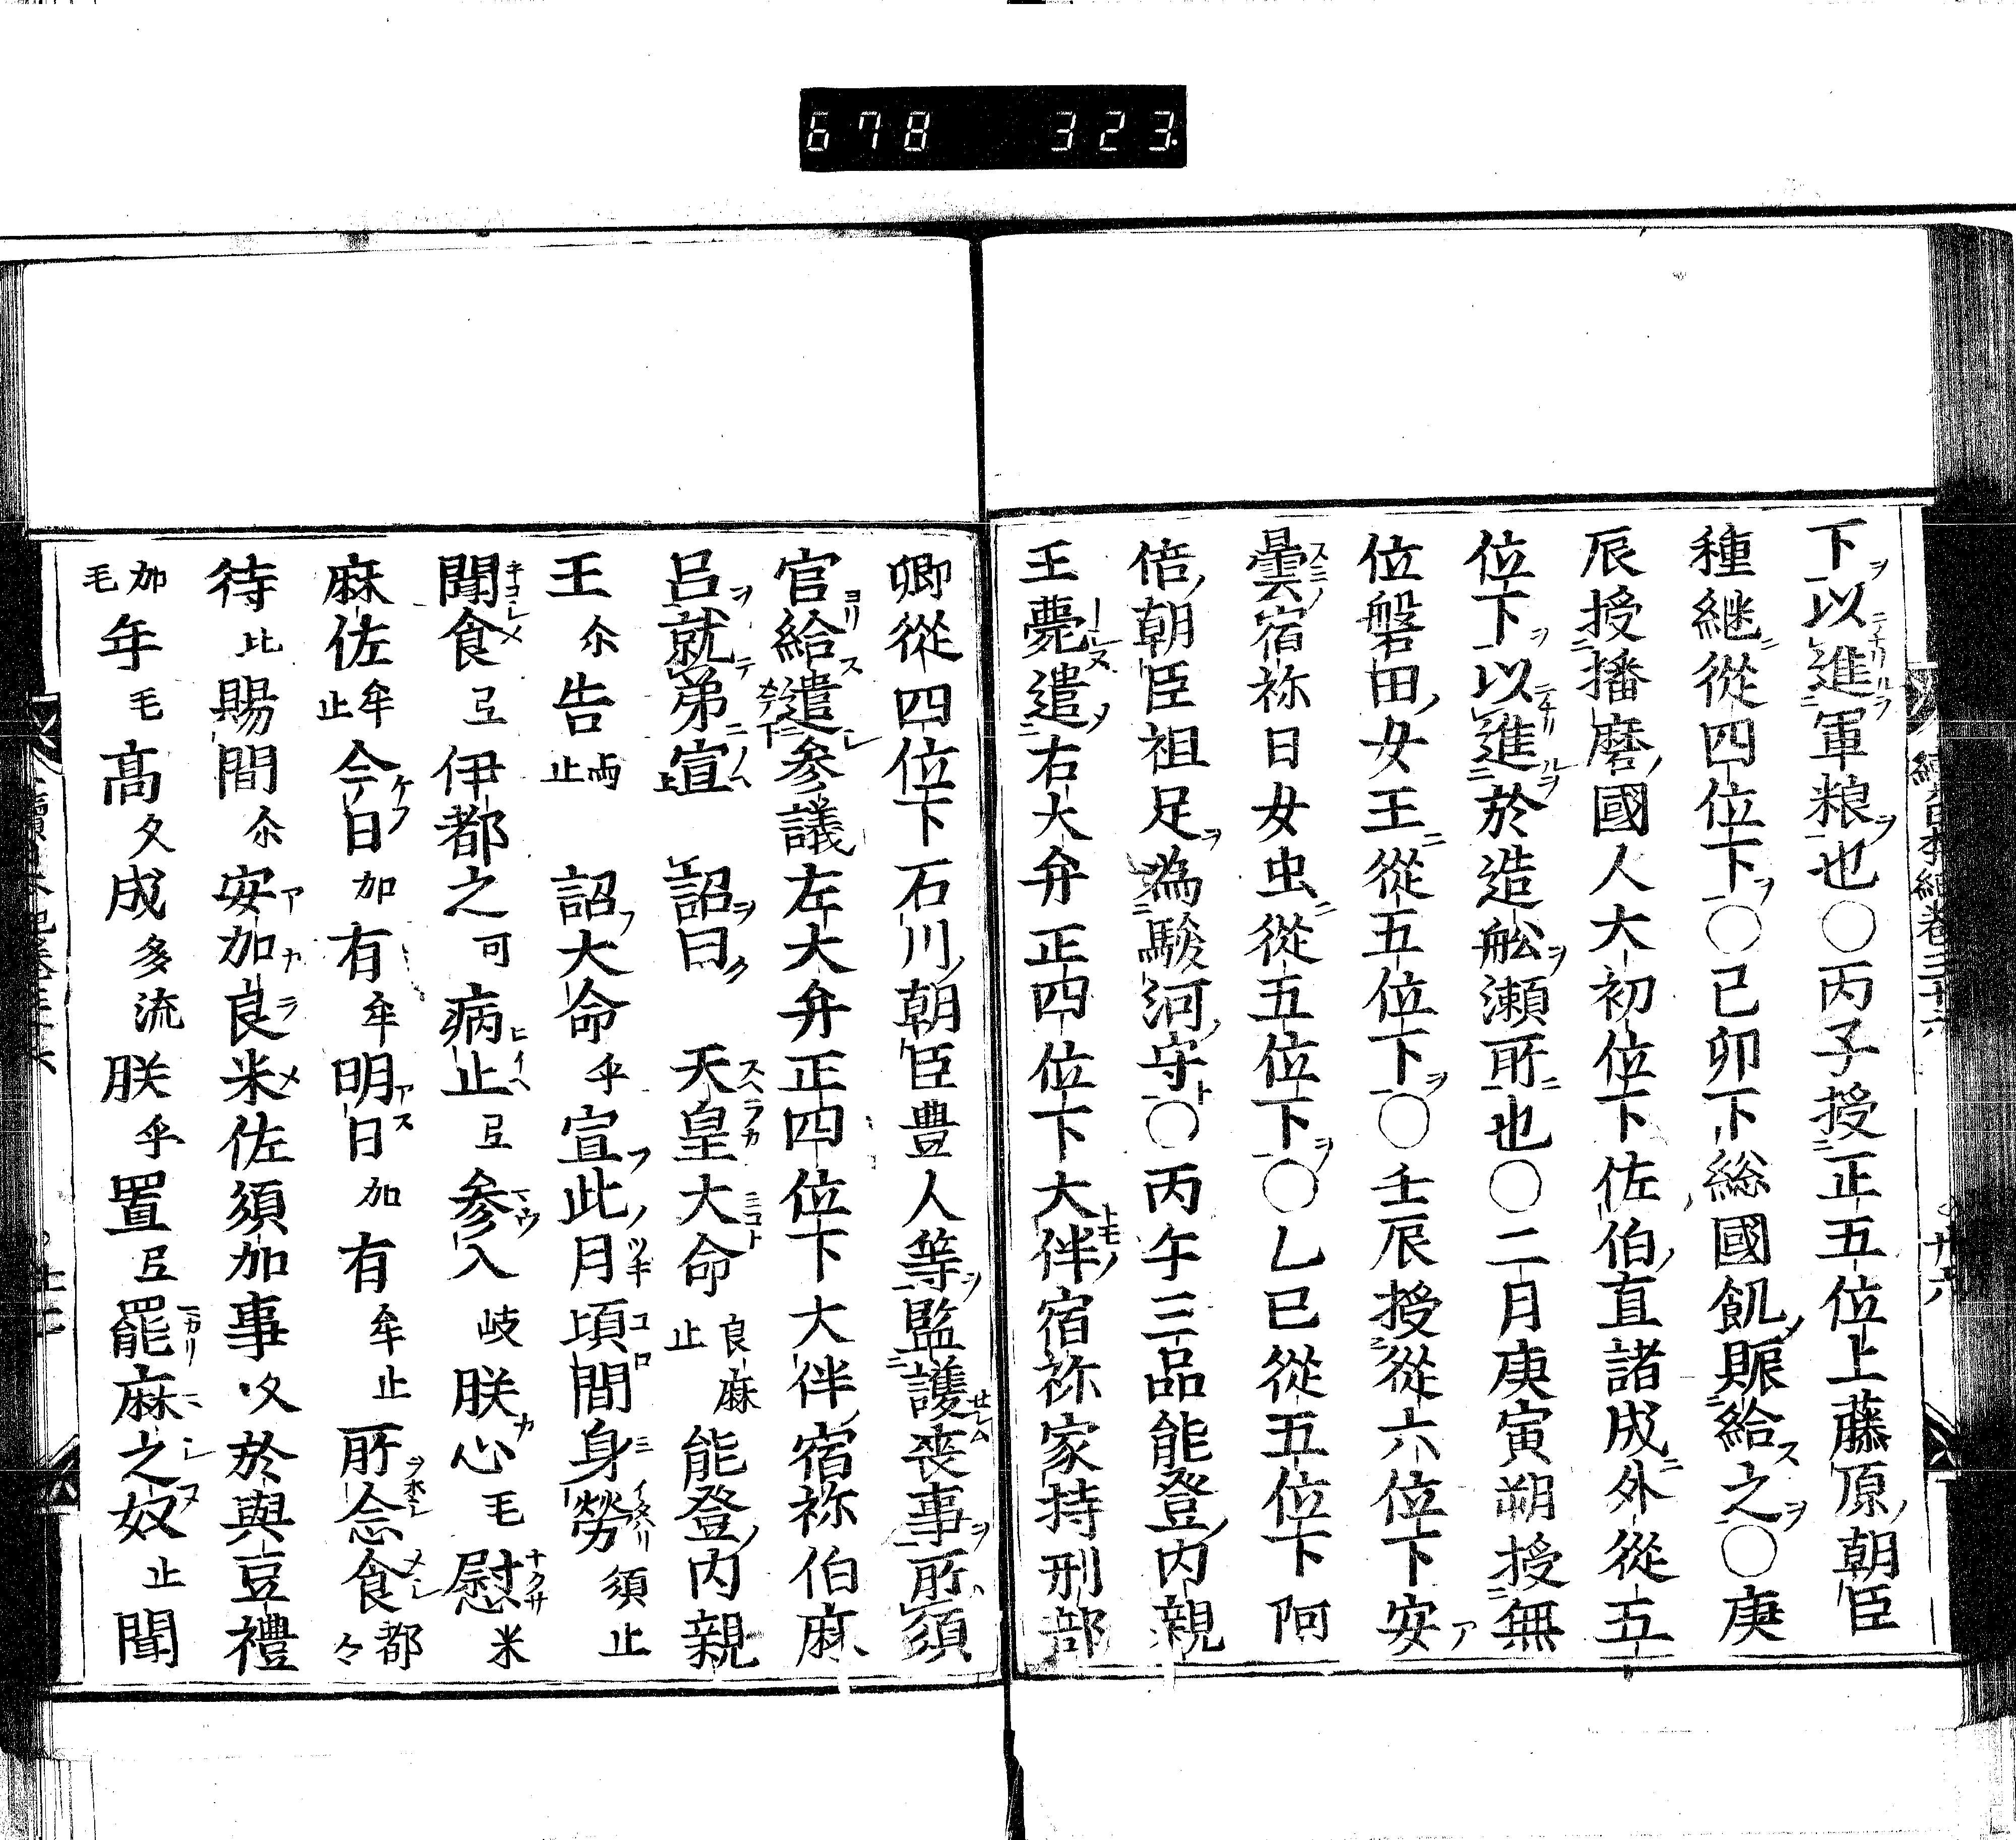 678 323
下以進軍粮也○丙子授正五位上藤原朝臣
種継從四位下○己卯下総國飢賑給之○庚
辰授播磨國人大初位下佐伯直諸成外從五
位下以進於造舩瀬所也○二月庚寅朔授無
位磐田女王從五位下○壬辰授從六位下安
曇宿祢日女虫從五位下○乙巳從五位下阿
倍朝臣祖足為駿河守○丙午三品能登内親
王薨遣右大弁正四位下大伴宿祢家持刑部
卿從四位下石川朝臣豊人等監護喪事所須
官給遣參議左大弁正四位下大伴宿祢伯麻
呂就弟宣詔曰天皇大命良麻止能登内親
王尓告両止詔大命乎宣此月頃間身勞須止
聞食弖伊都之可病止弖參入岐朕心毛慰米
麻佐牟止今日加有牟明日加有牟止所念食都々
待比賜間尓安加良米佐須加事久於與豆禮
加毛年毛髙久成多流朕乎置弖罷麻之奴止聞